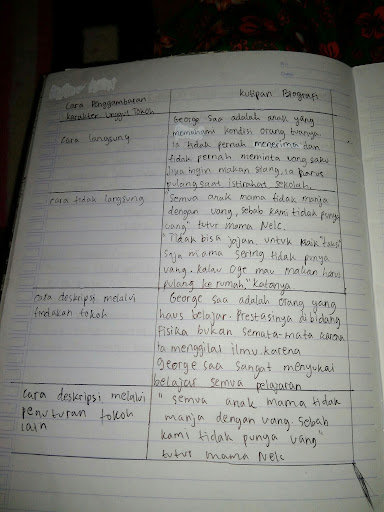 Cara Penggambaran
karakter Unggul Tokoh
Kutipan Biografi
Cara langsung
George Saa adalah anak yang
memahami kondisi orang tuanya
ia tidak pernah menerima dan
tidak pernah meminta uang saku
Jika ingin makan siang, ia harus
pulang saat istirahat sekolah.
cara tidak langsung
Semua anak mama tidak manja
dengan uang, sebab kami tidak punya
uang" tutur mama Nelc.
"Tidak bisa jajan. untuk naik taksi
saja mama sering tidak punya
uang. kalau Oge mau makan harus
pulang ke rumah" katanya.
cara deskripsi melalui
tindakan tokoh
George saa adalah orang yang
haus belajar. Prestasinya dibidang
fisika bukan semata-mata karena
ia menggilai ilmu. karena
George saa sangat menyukai
belajar semua pelajaran
cara deskripsi melalui
penuturan tokoh
lain
" semua anak mama tidak
manja dengan uang. sebab
kami tidak punya uang"
tutur mama Nelc